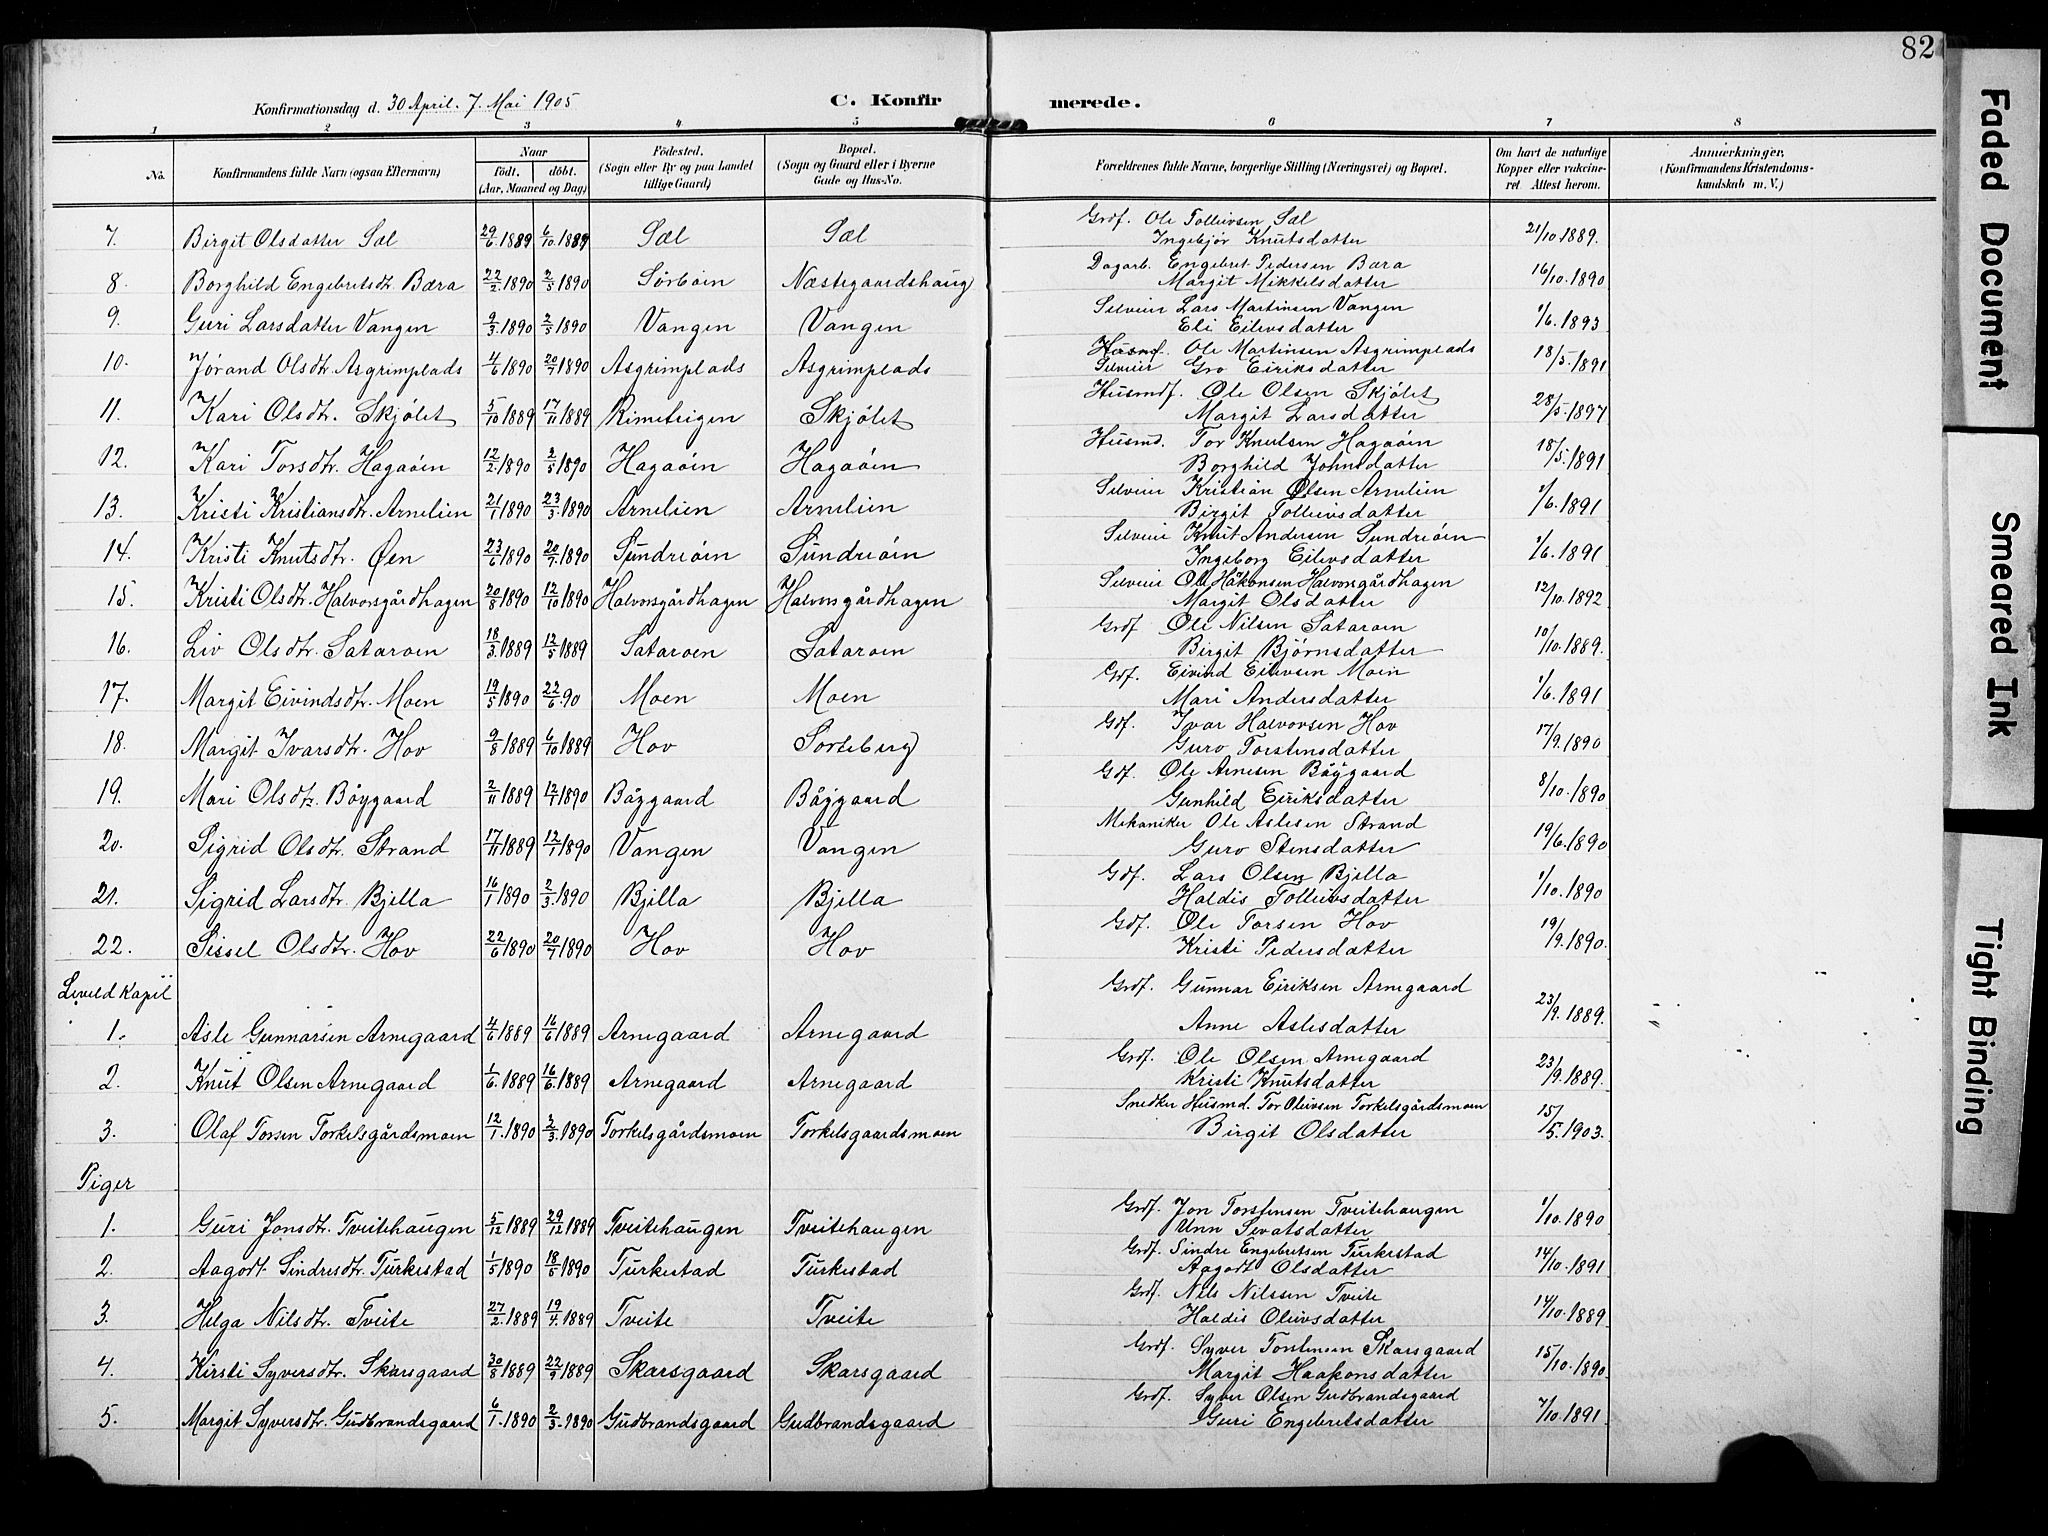 82
Konfirmationsdag d. 30 April. 7. Mai 1905
C. Konfirmerede.
1 2 3 4 5 6 7 8
No. Konfirmandens fulde Navn (ogsaa Efternavn) Naar født, døbt. (Aar, Maaned og Dag) Födested. (Sogn eller By og paa Landet tillige Gaard) Bopæl. (Sogn og Gaard eller i Byerne Gade og Hus-No. Forældrenes fulde Navne, borgerlige Stilling (Næringsvei) og Bopæl. Om havt de naturlige Kopper eller vakcineret. Attest herom. Anmærkninger, (Konfirmandens Kristendomskundskab m. V.)
7. Birgit Olsdatter Sæl 29/6 1889 6/10 1889 Sæl Sæl Grdf. Ole Tolleivsen Sæl 21/10 1889.
Ingebjør Knutsdatter
8. Borghild Engebretsdt. Bæra 22/2 1890 2/5 1890 Sørbøin Næstegaardshaug Dagarb. Engebret Pedersen Bæra 16/10 1890
Margit Mikkelsdatter
9. Guri Larsdatter Vangen 9/3 1890 2/5 1890 Vangen Vangen Selveier Lars Martinsen Vangen 1/6. 1893
Eli Eilevsdatter
10. Jørand Olsdtr. Asgrimplads 4/6 1890 20/7 1890 Asgrimplads Asgrimplads Husmd. Ole Martinsen Asgrimplads 18/5. 1891
Selveier Gro Eiriksdatter
11. Kari Olsdtr. Skjølet 5/10 1889 17/11 1889 Rimeteigen Skjølet Husmdf. Ole Olsen Skjølet 28/5. 1897
Margit Larsdatter
12. Kari Torsdtr. Hagaøin 12/2. 1890 2/5 1890 Hagaøin Hagaøin Husmd. Tor Knutsen Hagaøin 18/5. 1891
Borghild Johnsdatter
13. Kristi Kristiansdtr. Arnelien 21/1 1890 23/3 1890 Arnelien Arnelien Selveier Kristian Olsen Arnelien 1/6. 1891
Birgit Tolleivsdatter
14. Kristi Knutsdtr. Øen 23/6 1890 20/7. 1890 Sundreøin Sundreøin Selveier Knut Andersen Sundreøin 1/6. 1891
Ingeborg Eilevsdatter
15. Kristi Olsdtr. Halvorsgårdhagen 20/8 1890 12/10 1890 Halvorsgårdhagen Halvorsgårdhagen Selveier Ole Håkonsen Halvorsgårdhagen 12/10. 1892
Margit Olsdatter
16. Liv Olsdtr. Sataroen 18/3. 1889 12/5 1889 Sataroen Sataroen Grdf Ole Nilsen Sataroen 10/10. 1889.
Birgit Bjørnsdatter
17. Margit Eivindsdtr. Moen 19/5 1890 22/6. 90 Moen Moen Grdf. Eivind Eilevsen Moen 1/6. 1891
Mari Andersdatter
18. Margit Ivarsdtr. Hov 9/8 1889 6/10 1889 Hov Sorteberg Gdf. Ivar Halvorsen Hov 17/9. 1890
Guro Torstensdatter
19. Mari Olsdtr. Bøygaard 2/11 1889 12/1 1890 Bøygaard Bøygaard Gdf. Ole Arnesen Bøygaard 8/10. 1890
Gunhild Eiriksdatter
20. Sigrid Olsdtr. Strand 17/11 1889 12/1 1890 Vangen Vangen Mekaniker Ole Aslesen Strand 19/6. 1890
Guro Stensdatter
21. Sigrid Larsdtr. Bjella 16/1 1890 2/3. 1890 Bjella Bjella Gdf. Lars Olsen Bjella 1/10. 1890
Haldis Tolleivsdatter
22. Sissel Olsdtr. Hov 22/6 1890 20/7 1890 Hov Hov Gdf. Ole Torsen Hov 19/9. 1890.
Kristi Pedersdatter
Leveld Kapel
1. Asle Gunnarsen Arnegaard 4/6 1889 16/6 1889 Arnegaard Arnegaard Grdf. Gunnar Eiriksen Arnegaard 23/9. 1889.
Anne Aslesdatter
2. Knut Olsen Arnegaard 1/6. 1889 16/6. 1889 Arnegaard Arnegaard Grdf. Ole Olsen Arnegaard 23/9. 1889.
Kristi Knutsdatter
3. Olaf Torsen Torkelsgårdsmoen 12/1. 1890 2/3. 1890 Torkelsgårdsmoen Torkelsgaardsmoen Snedker Husmd. Tor Oleivsen Torkelsgårdsmoen 15/5. 1903.
Birgit Olsdatter
Piger
1. Guri Jonsdtr. Tveitehaugen 5/12 1889 29/12 1889 Tveitehaugen Tveitehaugen Grdf. Jon Torstensen Tveitehaugen 1/10. 1890
Unn Sevatsdatter
2. Aagodt Sindresdtr. Turkestad 1/5 1890 18/5 1890 Turkestad Turkestad Grdf. Sindre Engebretsen Turkestad 14/10. 1891
Aagodt Olsdatter
3. Helga Nilsdtr. Tveite 27/2. 1889 19/4. 1889 Tveite Tveite Grdf. Nils Nilssen Tveite 14/10. 1889
Haldis Oleivsdatter
4. Kirsti Syversdtr. Skarsgaard 30/8 1889 22/9 1889 Skarsgaard Skarsgaard Grdf. Syver Torstensen Skarsgaard 15/10. 1890
Margit Haakonsdatter
5. Margit Syversdtr. Gudbrandsgaard 6/1. 1890 2/3. 1890 Gudbrandsgaard Gudbrandsgaard Grdf. Syver Olsen Gudbrandsgaard 7/10. 1891
Guri Engebretsdatter
Faded Document
Smeared Ink
Tight Binding